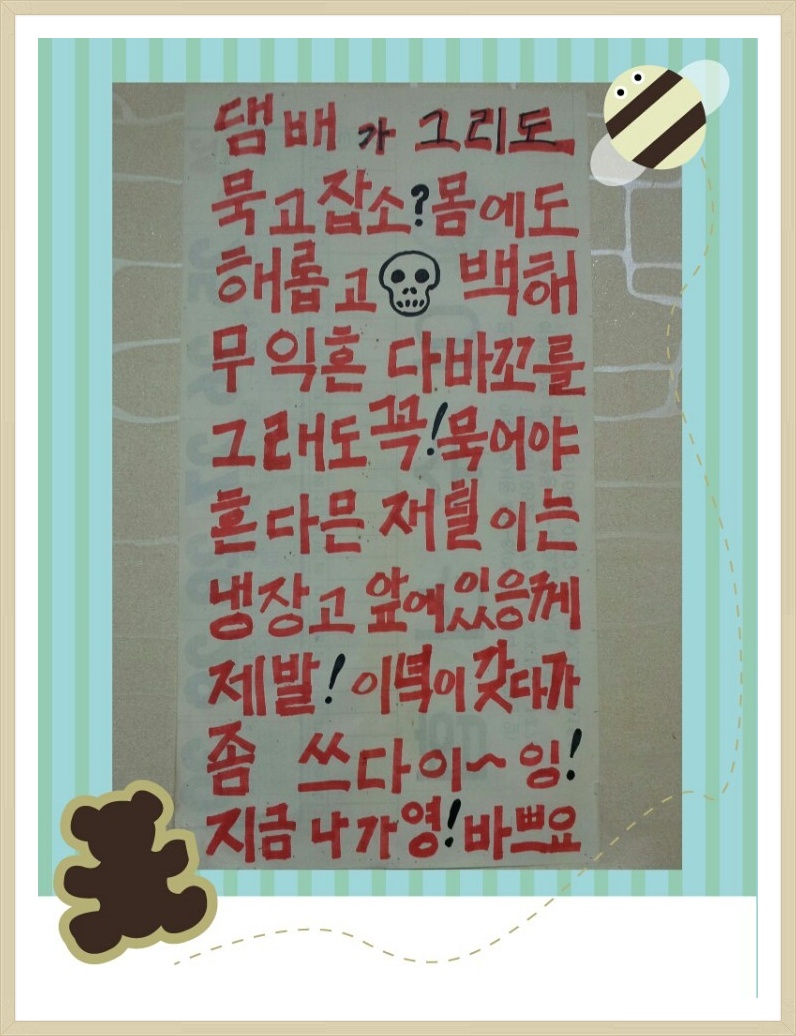 댐배가 그리도
묵고잡소?몸에도
해롭고 백해
무익혼 다바꼬를
그래도꼭!묵어야
혼다믄 재털이는
냉장고 앞에있응께
제발! 이녁이갖다가
좀 쓰다이~잉!
지금 나가영!바쁘요